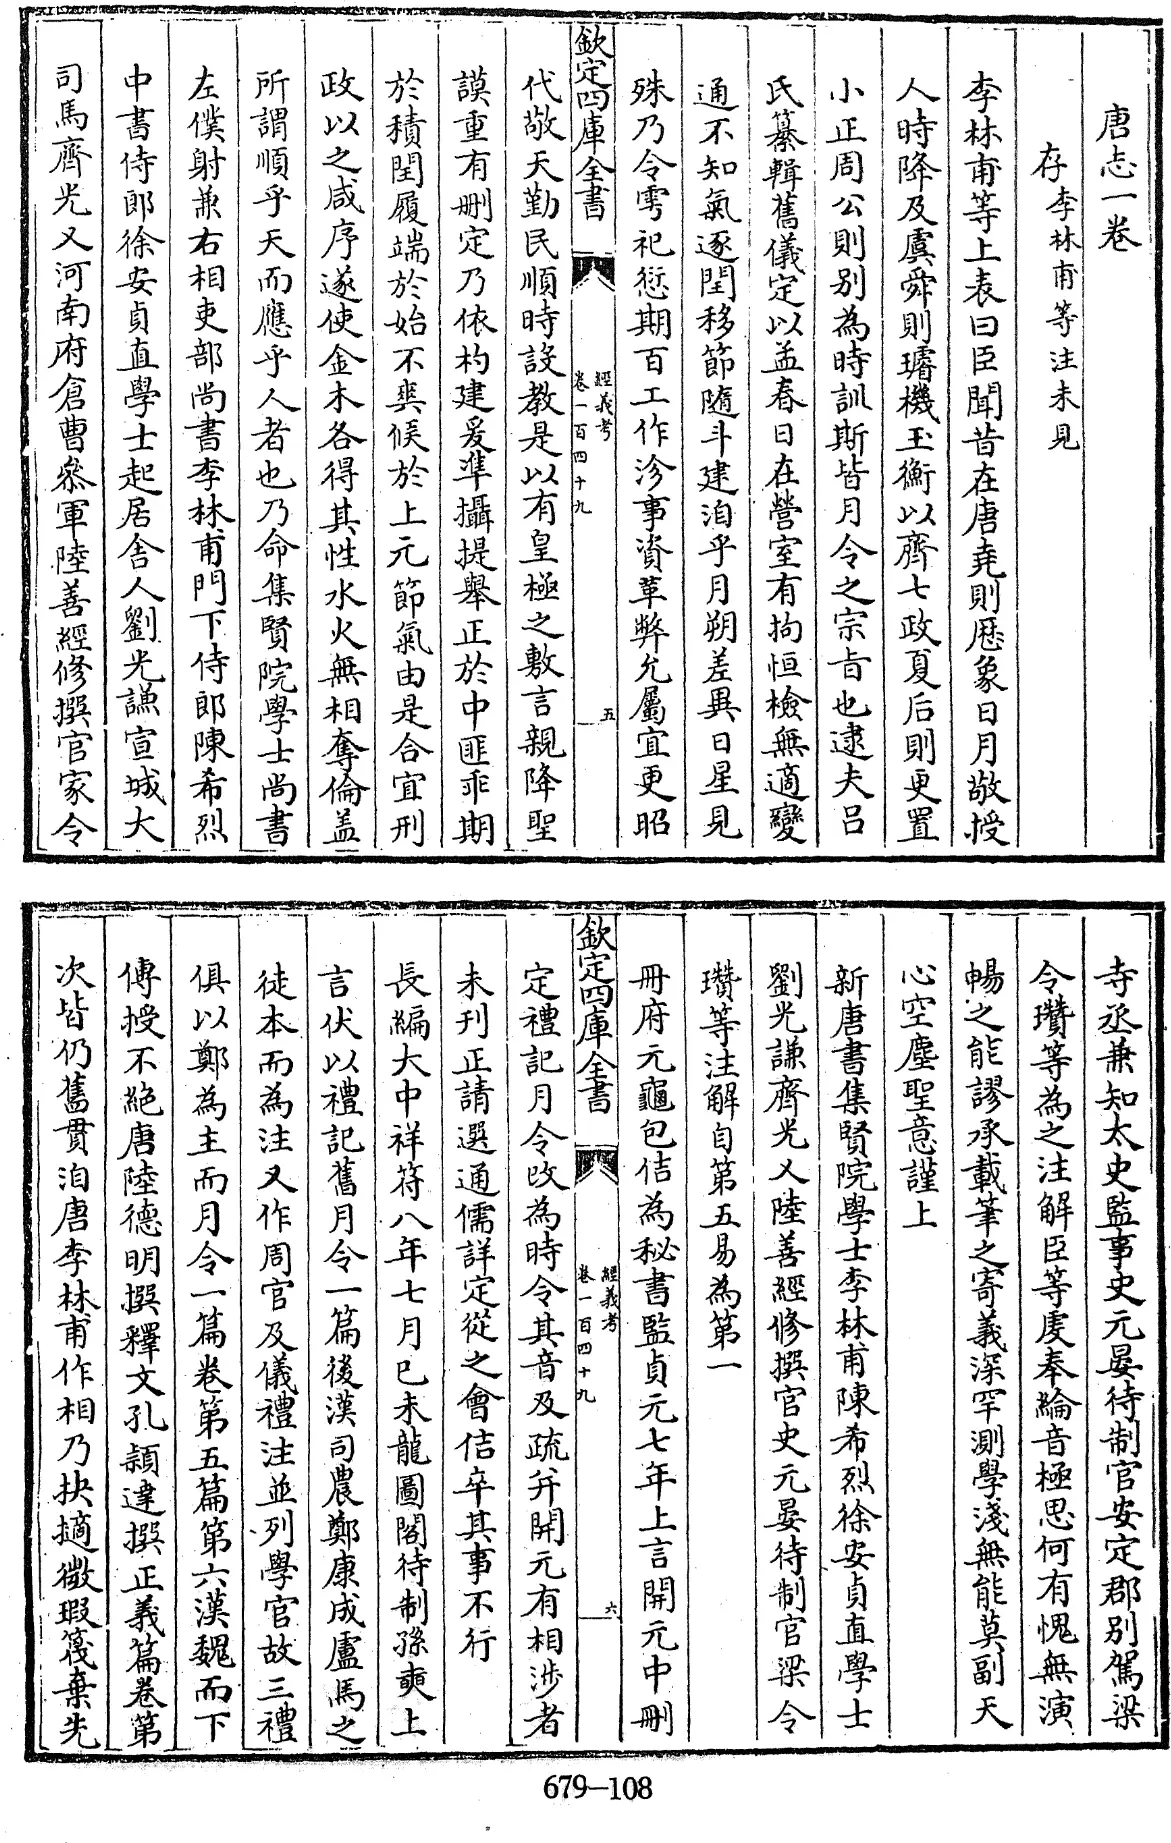 唐志一卷
存李林甫等注未見
李林甫等上表曰臣聞昔在唐堯則厯象日月敬授
人時降及虞舜則璿機玉衡以齊七政夏后則更置
小正周公則别為時訓斯皆月令之宗旨也逮夫吕
氏纂輯舊儀定以孟春日在營室有拘恒檢無適變
通不知氣逐閏移節隨斗建洎乎月朔差異日星見
殊乃令雩祀愆期百工作沴事資革弊允屬宜更昭
欽定四庫全書
經義考
卷一百四十九
五
代敬天勤民順時設教是以有皇極之敷言親降聖
謨重有刪定乃依杓建爰準攝提舉正於中匪乖期
於積閏履端於始不爽候於上元節氣由是合宜刑
政以之咸序遂使金木各得其性水火無相奪倫盖
所謂順乎天而應乎人者也乃命集賢院學士尚書
左僕射兼右相吏部尚書李林甫門下侍郎陳希烈
中書侍郎徐安貞直學士起居舍人劉光謙宣城大
司馬齊光乂河南府倉曹叅軍陸善經修撰官家令
寺丞兼知太史監事史元晏待制官安定郡别駕梁
令瓚等為之注解臣等䖍奉綸音極思何有愧無演
暢之能謬承載筆之寄義深罕測學淺無能莫副天
心空塵聖意謹上
新唐書集賢院學士李林甫陳希烈徐安貞直學士
劉光謙齊光乂陸善經修撰官史元晏待制官梁令
瓚等注解自第五易為第一
冊府元龜包佶為秘書監貞元七年上言開元中刪
欽定四庫全書
經義考
卷一百四十九
六
定禮記月令改為時令其音及疏并開元有相渉者
未刊正請選通儒詳定從之會佶卒其事不行
長編大中祥符八年七月己未龍圖閣待制孫奭上
言伏以禮記舊月令一篇後漢司農鄭康成盧馬之
徒本而為注又作周官及儀禮注並列學官故三禮
俱以鄭為主而月令一篇卷第五篇第六漢魏而下
傳授不絶唐陸德明撰釋文孔頴達撰正義篇卷第
次皆仍舊貫洎唐李林甫作相乃抉擿微瑕篾棄先
679–108